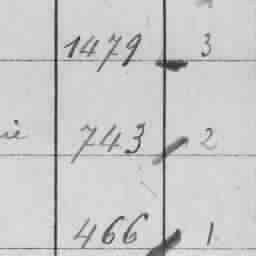 1479 3
743 2
466 1